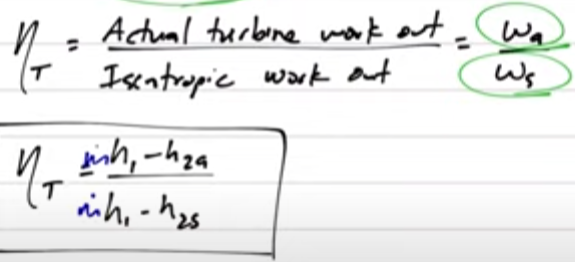 η_T = Actual turbine work out / Isentropic work out = w_a / w_s
η_T = ṁh₁ - h_2a / ṁh₁ - h_2s